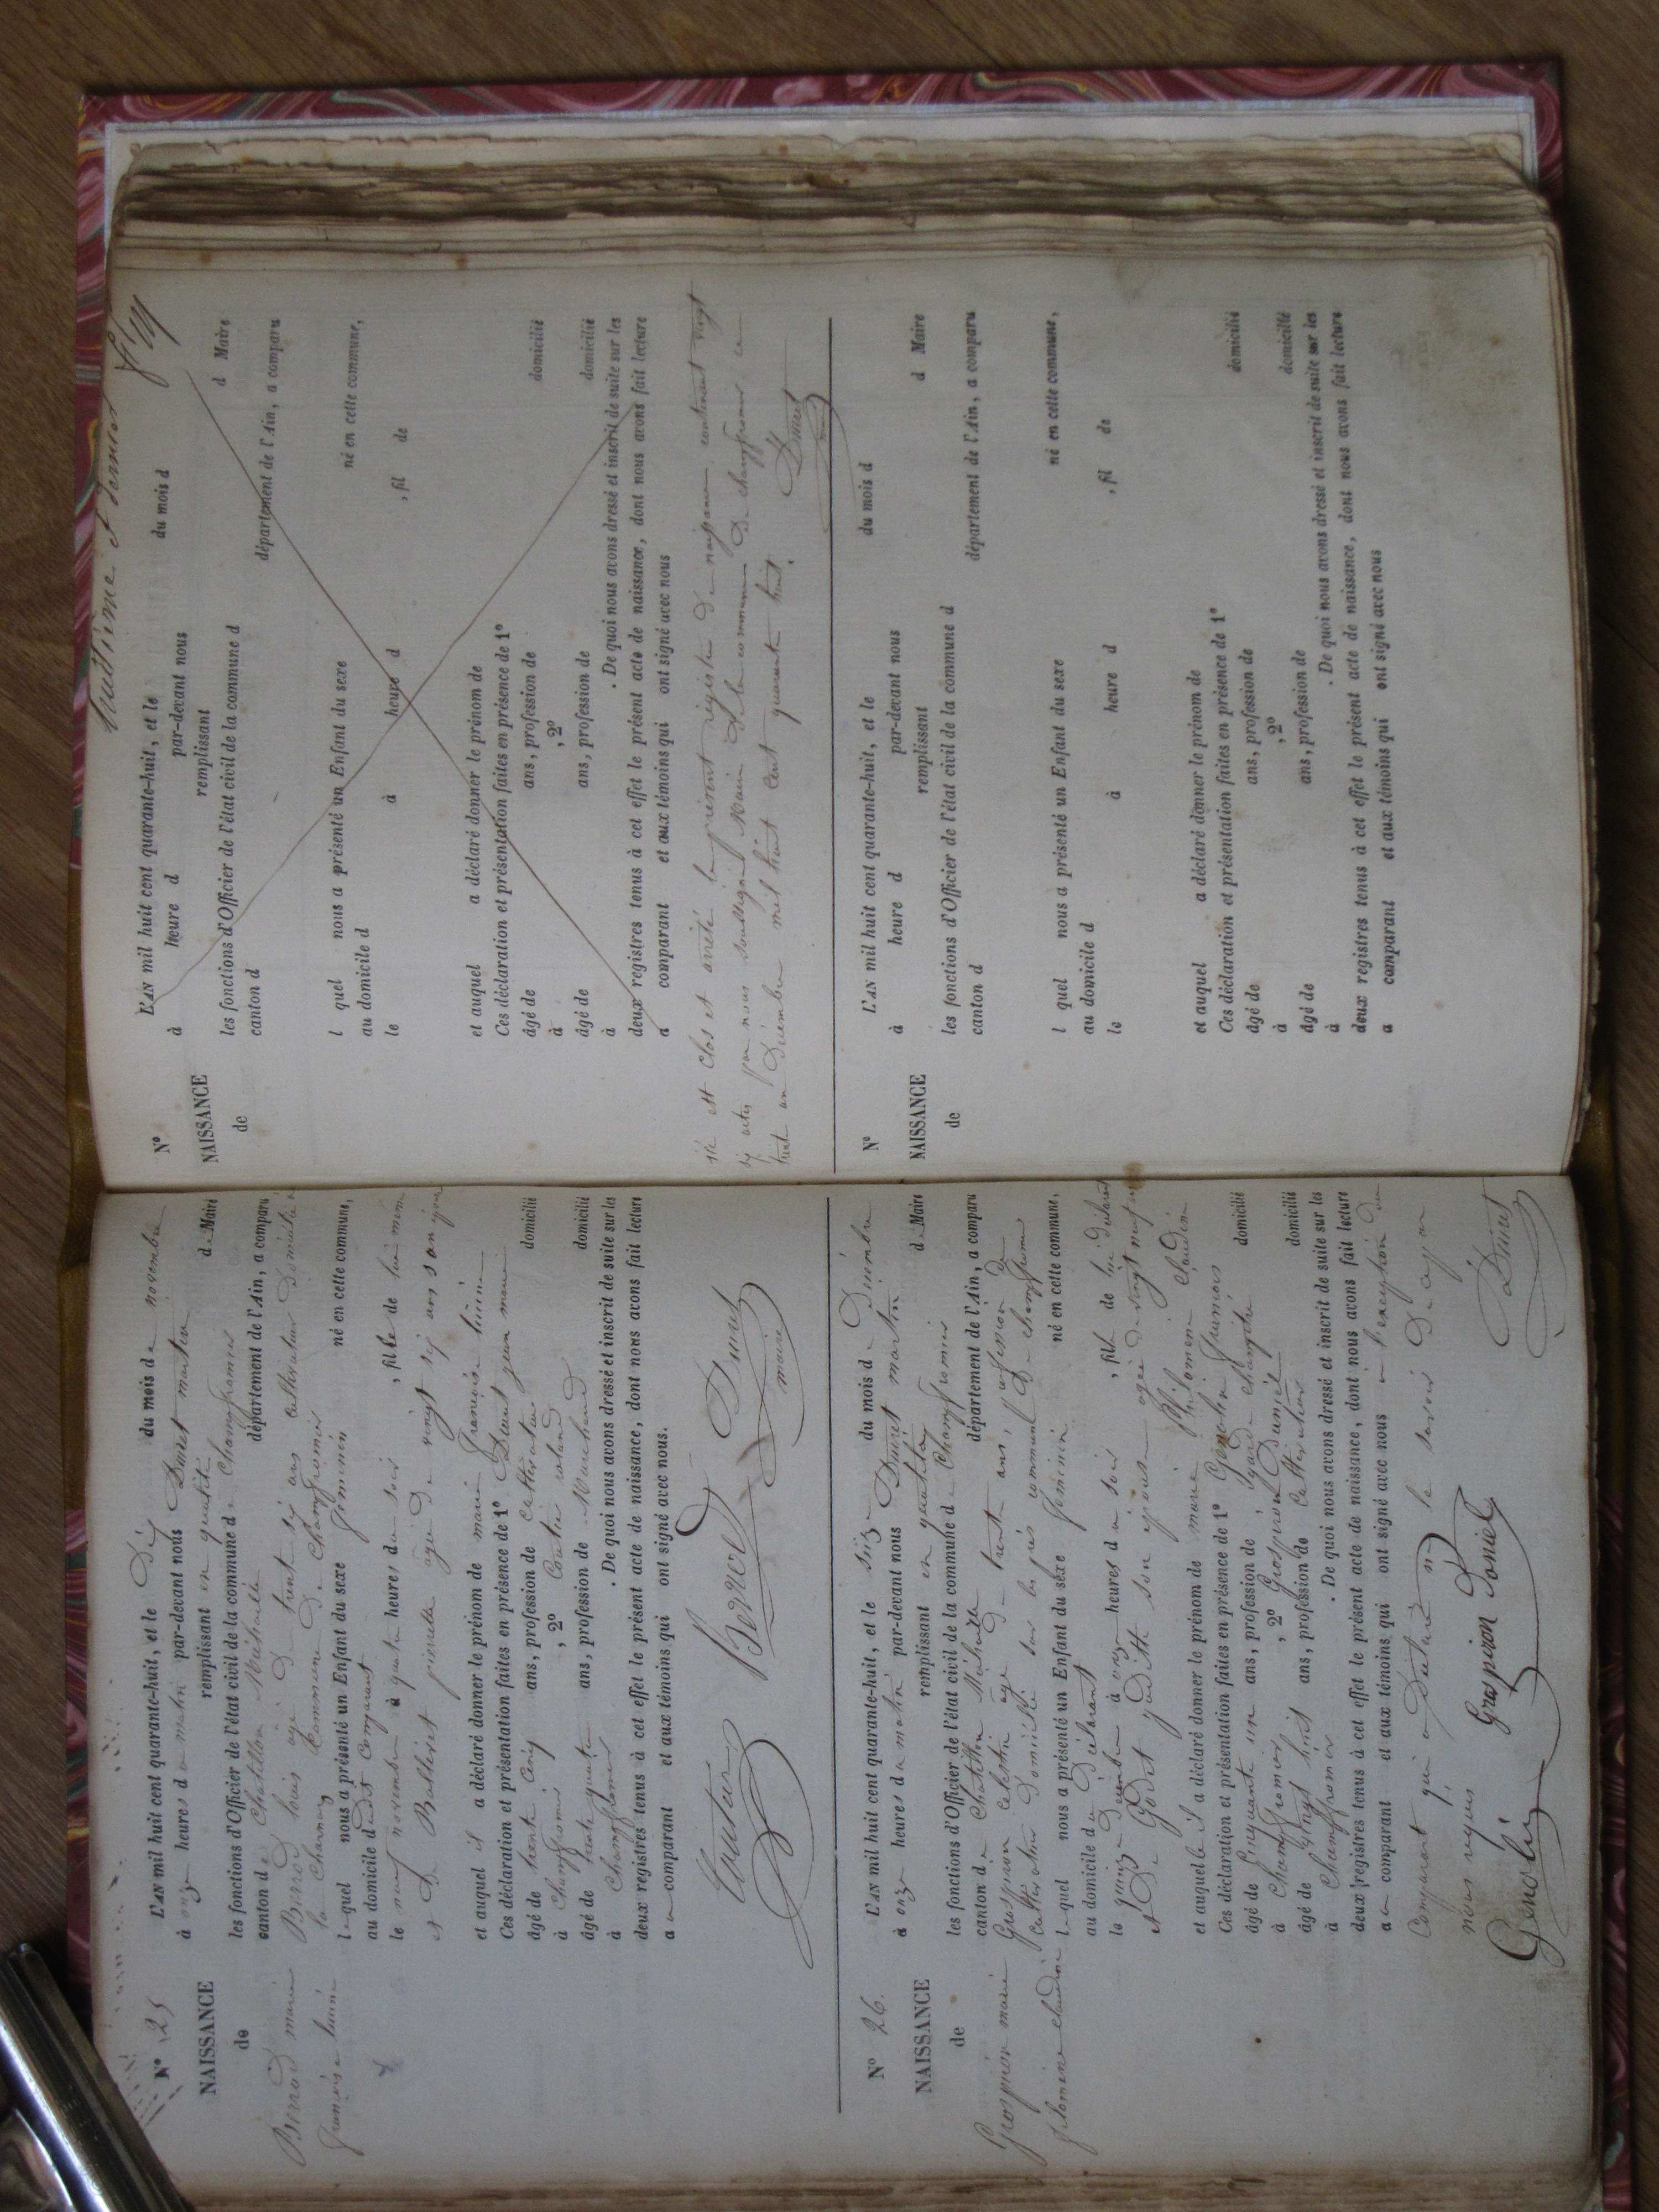 N° 25
NAISSANCE
de
Berrod marie
françoise
L'AN mil huit cent quarante-huit, et le Dix du mois de novembre
à onze heures du matin par-devant nous Duret martin
remplissant en qualité de Maire
les fonctions d'Officier de l'état civil de la commune de Champfromier
canton de Châtillon Michaille département de l'Ain, a comparu
Berrod louis agé de trente six ans cultivateur domicilié à
la Charnay commune de Champfromier
lequel nous a présenté un Enfant du sexe féminin né en cette commune,
au domicile dudit Comparant
le neuf novembre à quatre heures du soir , fille de lui même
et de Ballivet agée de vingt six ans son épouse
et auquel il a déclaré donner le prénom de marie françoise
Ces déclaration et présentation faites en présence de 1° Ducret
âgé de trente cinq ans, profession de cultivateur domicilié
à Champfromier , 2° Coutier roland
âgé de trente quatre ans, profession de Marchand domicilié
à Champfromier . De quoi nous avons dressé et inscrit de suite sur les
deux registres tenus à cet effet le présent acte de naissance, dont nous avons fait lecture
au comparant et aux témoins qui ont signé avec nous.
Coutier Berrod Duret
maire
N° 26.
NAISSANCE
de
Grospiron marie
filomene claudine
L'AN mil huit cent quarante-huit, et le seize du mois de Décembre
à onze heures du matin par-devant nous Duret martin
remplissant en qualité de Maire
les fonctions d'Officier de l'état civil de la commune de Champfromier
canton de Châtillon Michaille département de l'Ain, a comparu
Grospiron celestin agé de trente ans, profession de
cultivateur domicilié sous les prés commune de champfromier
lequel nous a présenté un Enfant du sexe féminin né en cette commune,
au domicile du déclarant
le quinze décembre à onze heures du soir , fille de lui déclarant
et de Godet judith son épouse agée de vingt neuf ans
et auquel il a déclaré donner le prénom de marie Philomene Claudine
Ces déclaration et présentation faites en présence de 1° Genolin
âgé de Cinquante un ans, profession de garde champêtre domicilié
à Champfromier , 2° Grospiron Daniel
âgé de vingt huit ans, profession de Cultivateur domicilié
à Champfromier . De quoi nous avons dressé et inscrit de suite sur les
deux registres tenus à cet effet le présent acte de naissance, dont nous avons fait lecture
au comparant et aux témoins qui ont signé avec nous à l'exception du
Comparant qui a déclaré ne le savoir de ce
requis
Genolin Grospiron Doniel Duret
huitième et dernier f.
N°
NAISSANCE
de
L'AN mil huit cent quarante-huit, et le du mois d
à heure d par-devant nous
remplissant d Maire
les fonctions d'Officier de l'état civil de la commune d
canton d département de l'Ain, a comparu
l quel nous a présenté un Enfant du sexe né en cette commune,
au domicile d
le à heure d , fil de
et auquel a déclaré donner le prénom de
Ces déclaration et présentation faites en présence de 1°
âgé de ans, profession de domicilié
à , 2°
âgé de ans, profession de domicilié
à . De quoi nous avons dressé et inscrit de suite sur les
deux registres tenus à cet effet le présent acte de naissance, dont nous avons fait lecture
a comparant et aux témoins qui ont signé avec nous
été clos et arrêté le présent registre de naissance contenant vingt
six actes par nous soussigné Maire de la commune de champfromier ce
trente un Décembre mil huit cent quarante huit.
Duret
N°
NAISSANCE
de
L'AN mil huit cent quarante-huit, et le du mois d
à heure d par-devant nous
remplissant d Maire
les fonctions d'Officier de l'état civil de la commune d
canton d département de l'Ain, a comparu
l quel nous a présenté un Enfant du sexe né en cette commune,
au domicile d
le à heure d , fil de
et auquel a déclaré donner le prénom de
Ces déclaration et présentation faites en présence de 1°
âgé de ans, profession de domicilié
à , 2°
âgé de ans, profession de domicilié
à . De quoi nous avons dressé et inscrit de suite sur les
deux registres tenus à cet effet le présent acte de naissance, dont nous avons fait lecture
a comparant et aux témoins qui ont signé avec nous